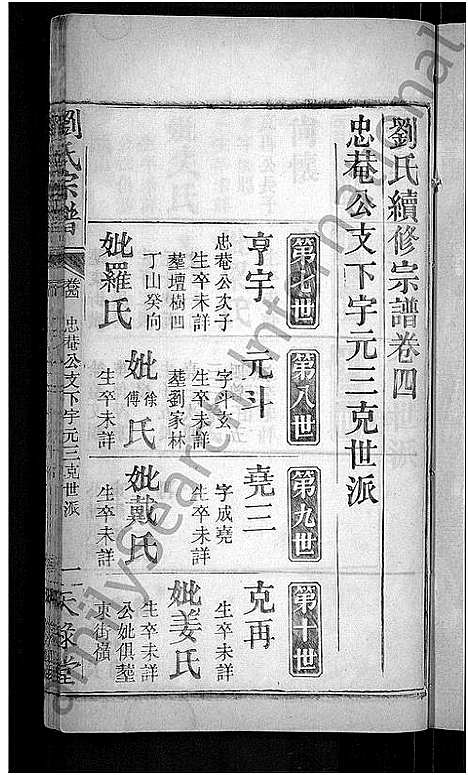 劉氏續修宗譜卷四
忠菴公支下宇元三克世派
第七世
亨宇
忠菴公次子
生卒未詳
塟壇樹凹
丁山癸向
妣羅氏
第八世
元斗
字斗玄
生卒未詳
塟劉家林
妣徐傅氏
生卒未詳
第九世
堯三
字成堯
生卒未詳
妣戴氏
生卒未詳
第十世
克再
生卒未詳
妣姜氏
生卒未詳
公妣俱塟
東街嶺
劉氏宗譜
卷四
忠菴公支下宇元三克世派
一
天祿堂
familysearch International